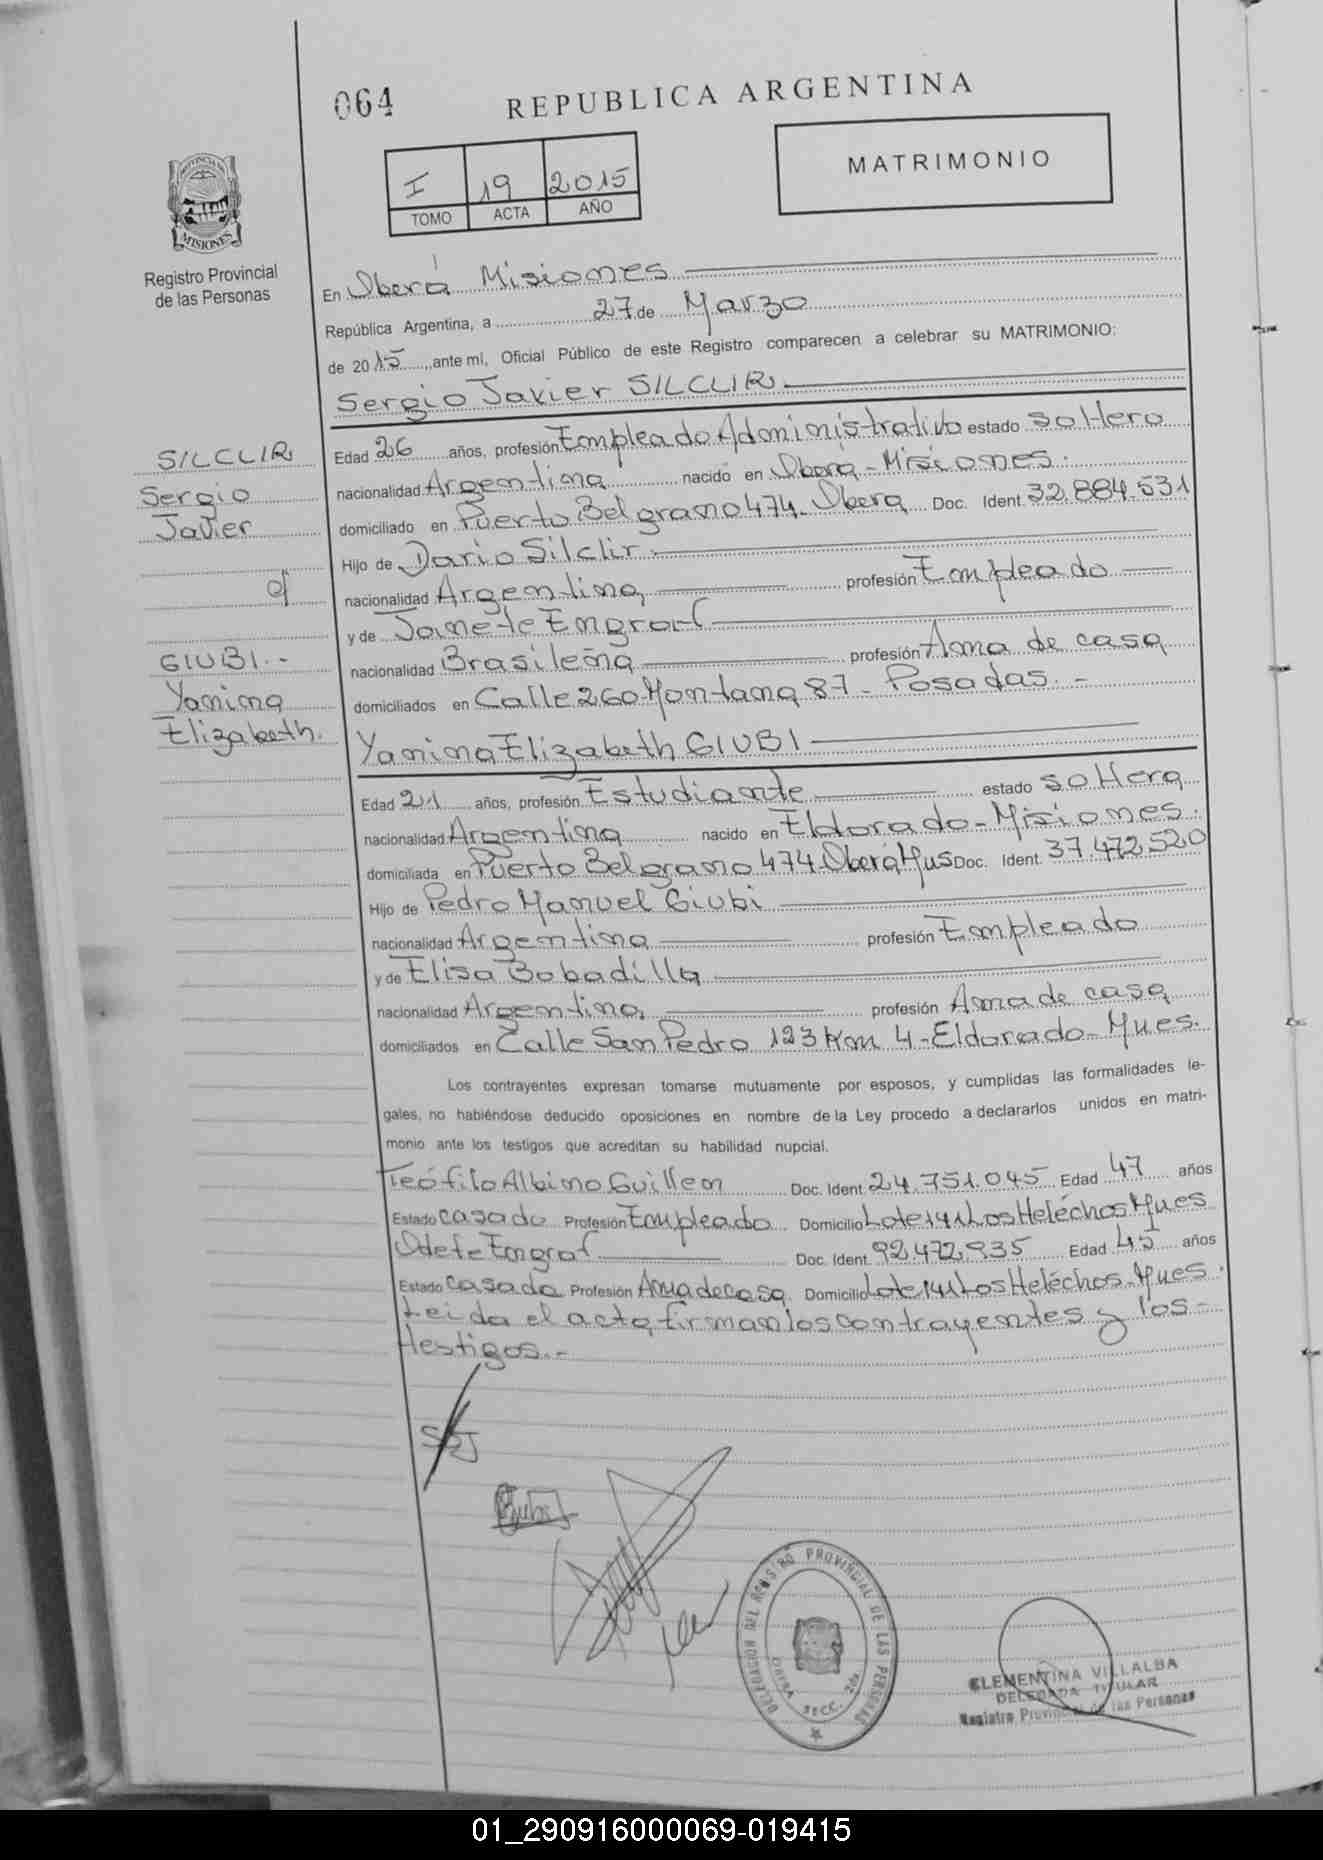 064
REPUBLICA ARGENTINA
I 19 2015
TOMO ACTA AÑO
MATRIMONIO
PROVINCIA DE
MISIONES
Registro Provincial
de las Personas
En Oberá Misiones
República Argentina, a 27 de Marzo
de 2015, ante mi, Oficial Público de este Registro comparecen a celebrar su MATRIMONIO:
Sergio Javier SILCLIR
Edad 26 años, profesión Empleado Administrativo estado soltero
nacionalidad Argentina nacido en Oberá - Misiones.
domiciliado en Puerto Belgrano 474 - Obera Doc. Ident. 32.884.531
Hijo de Dario Silclir
nacionalidad Argentina profesión Empleado
y de Janete Engraf
nacionalidad Brasileña profesión Ama de casa
domiciliados en Calle 260 Montana 87 - Posadas. -
SILCLIR
Sergio
Javier
GIUBI. -
Yanina
Elizabeth.
Yanina Elizabeth GIUBI
Edad 21 años, profesión Estudiante estado soltera
nacionalidad Argentina nacido en Eldorado - Misiones.
domiciliada en Puerto Belgrano 474 Oberá Doc. Ident. 37.472.520
Hijo de Pedro Manuel Giubi
nacionalidad Argentina profesión Empleado
y de Elisa Bobadilla
nacionalidad Argentina, profesión Ama de casa
domiciliados en Calle San Pedro 123 Km 4 - Eldorado - Mnes.
Los contrayentes expresan tomarse mutuamente por esposos, y cumplidas las formalidades le-
gales, no habiéndose deducido oposiciones en nombre de la Ley procedo a declararlos unidos en matri-
monio ante los testigos que acreditan su habilidad nupcial.
Teófilo Albino Guillen Doc. Ident. 24.751.045 Edad 47 años
Estado casado Profesión Empleado Domicilio Lote 141 Los Helechos Mnes
Odete Engraf Doc. Ident. 92.472.935 Edad 45 años
Estado casada Profesión Ama de casa Domicilio Lote 141 Los Helechos - Mnes.
Leida el acta, firman los contrayentes y los -
testigos. -
SSJ
DELEGACION DEL REGISTRO PROVINCIAL DE LAS PERSONAS
OBERA SECC. 2da.
CLEMENTINA VILLALBA
DELEGADA TITULAR
Registro Provincial de las Personas
01_290916000069-019415